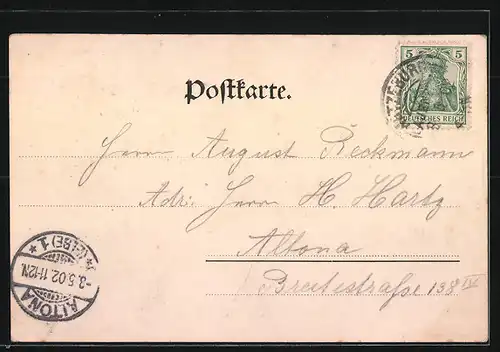 Postkarte.
5 5
DEUTSCHES REICH
Herrn August Reckmann
Adr: Herrn H. Hartz
Altona
Breitestraße 138 IV
ALTONA
(ELBE) 1
-3.5.02.11-12N.